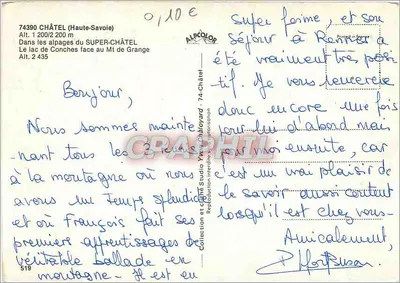 74390 CHÂTEL (Haute-Savoie)
Alt. 1 200/2 200 m
Dans les alpages du SUPER-CHÂTEL
Le lac de Conches face au Mt de Grange
Alt. 2 435
0,10€
Bonjour,
Nous sommes mainte
nant tous les 3
à la montagne où nous
avons un temps splendide
et où François fait ses
premiers apprentissages de
véritable ballade en
montagne - Il est en
519
super forme, et son
séjour à Rennes a
été vraiment très posi
tif. Je vous remercie
donc encore une fois
pour lui d'abord mais
pour moi ensuite, car
c'est un vrai plaisir de
le savoir aussi content
lorsqu'il est chez vous -
Amicalement,
ALPCOLOR
Collection et cliché Studio Yvan Chaloyard - 74-Châtel
CPARAMA